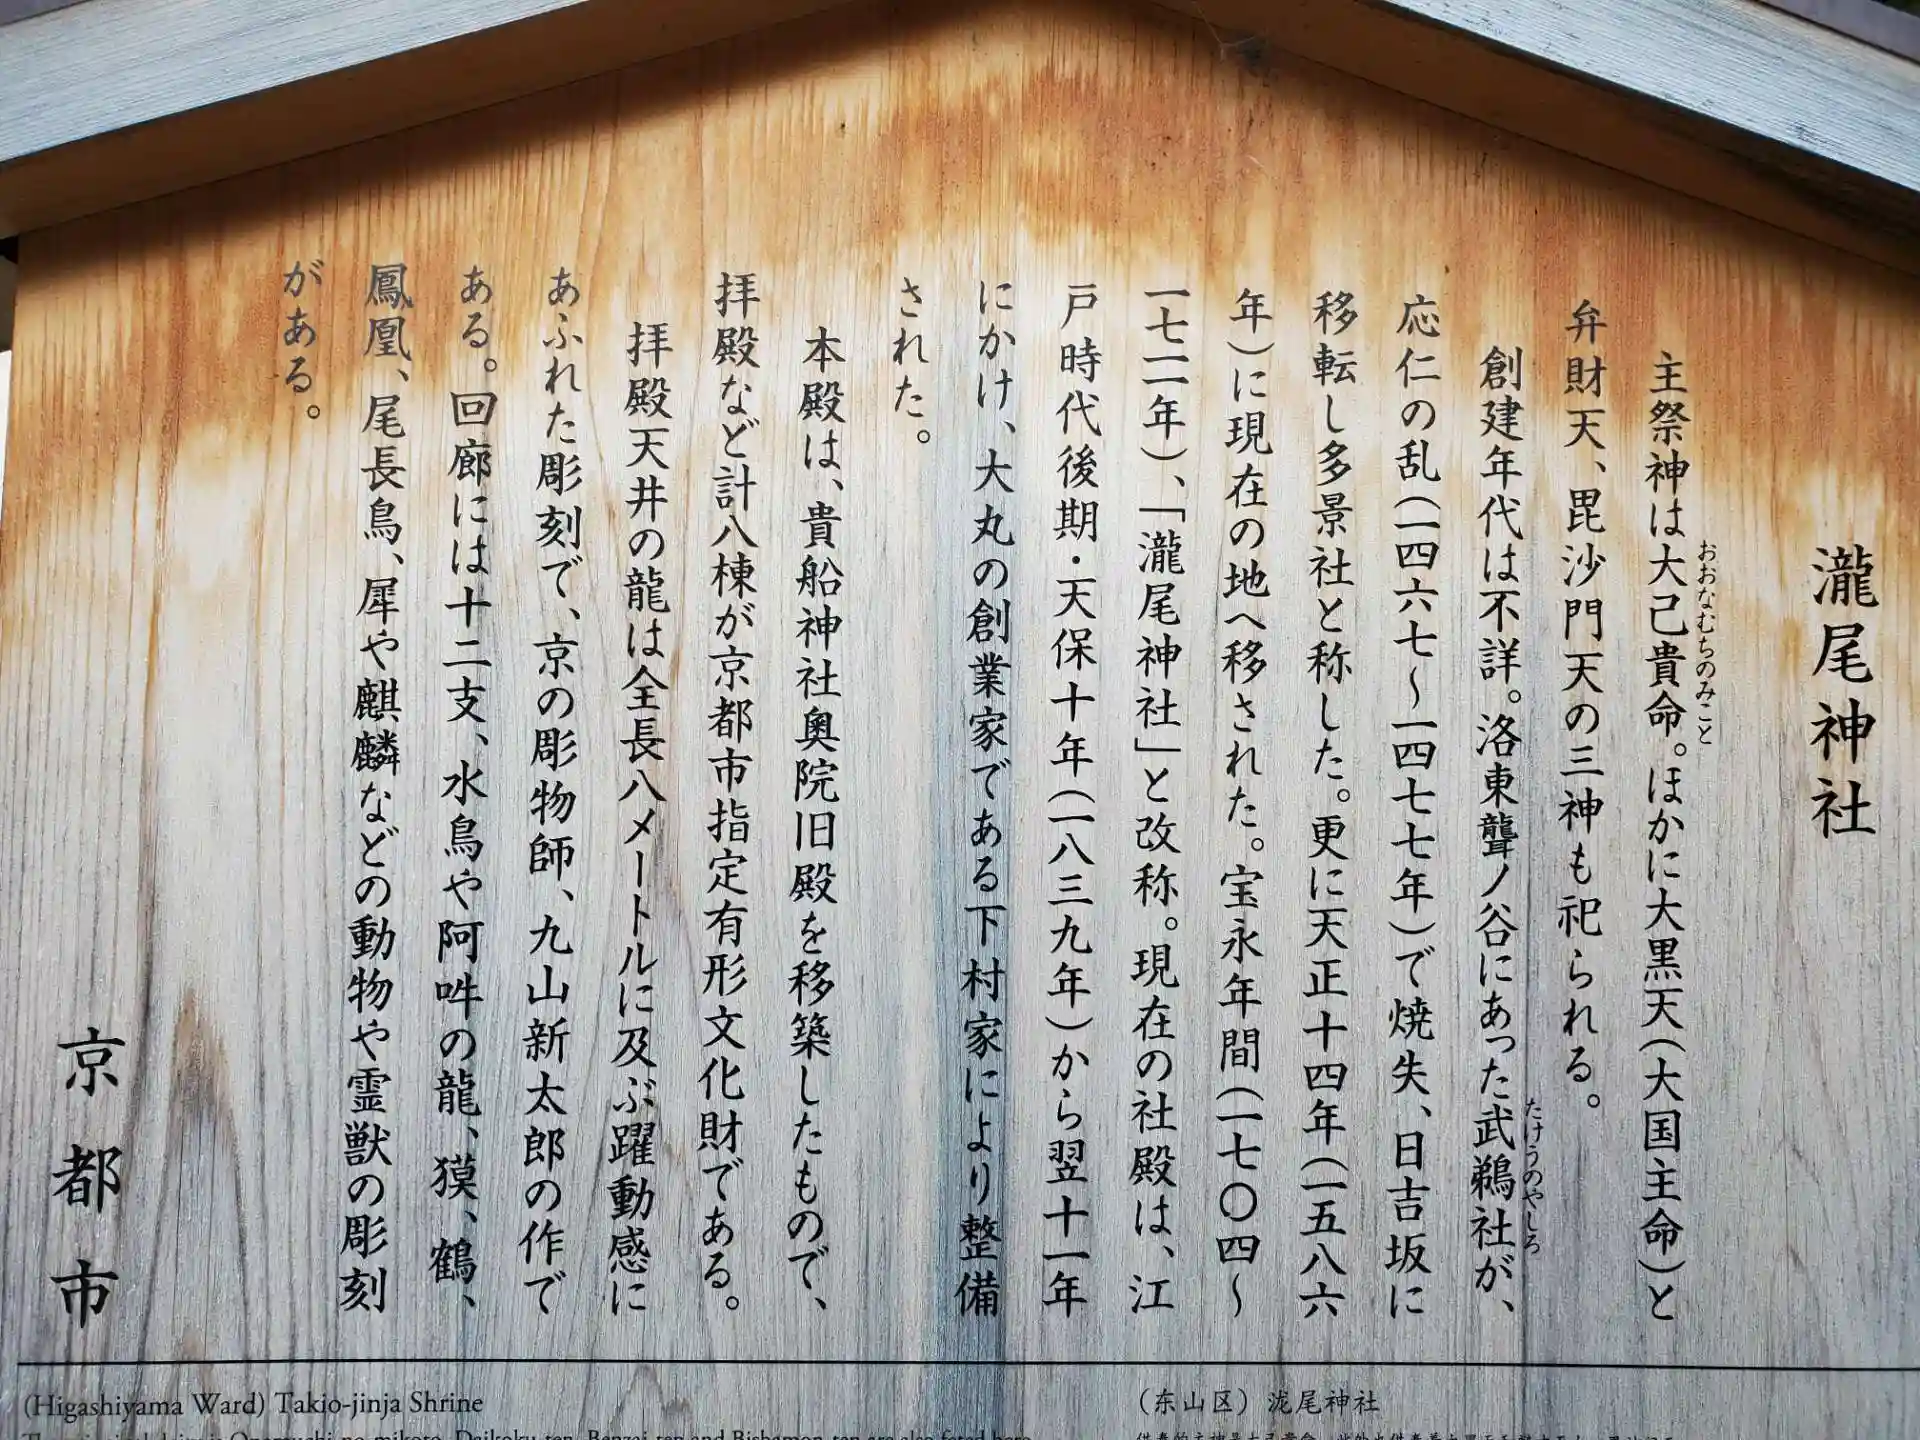 瀧尾神社
主祭神は大己貴命。ほかに大黒天(大国主命)と
おおなむちのみこと
弁財天、毘沙門天の三神も祀られる。
創建年代は不詳。洛東聾ノ谷にあった武鵜社が、
たけうのやしろ
応仁の乱(一四六七〜一四七七年)で焼失、日吉坂に
移転し多景社と称した。更に天正十四年(一五八六
年)に現在の地へ移された。宝永年間(一七〇四〜
一七一一年)、「瀧尾神社」と改称。現在の社殿は、江
戸時代後期・天保十年(一八三九年)から翌十一年
にかけ、大丸の創業家である下村家により整備
された。
本殿は、貴船神社奥院旧殿を移築したもので、
拝殿など計八棟が京都市指定有形文化財である。
拝殿天井の龍は全長八メートルに及ぶ躍動感に
あふれた彫刻で、京の彫物師、九山新太郎の作で
ある。回廊には十二支、水鳥や阿吽の龍、獏、鶴、
鳳凰、尾長鳥、犀や麒麟などの動物や霊獣の彫刻
がある。
京都市
(Higashiyama Ward) Takio-jinja Shrine
(东山区) 泷尾神社